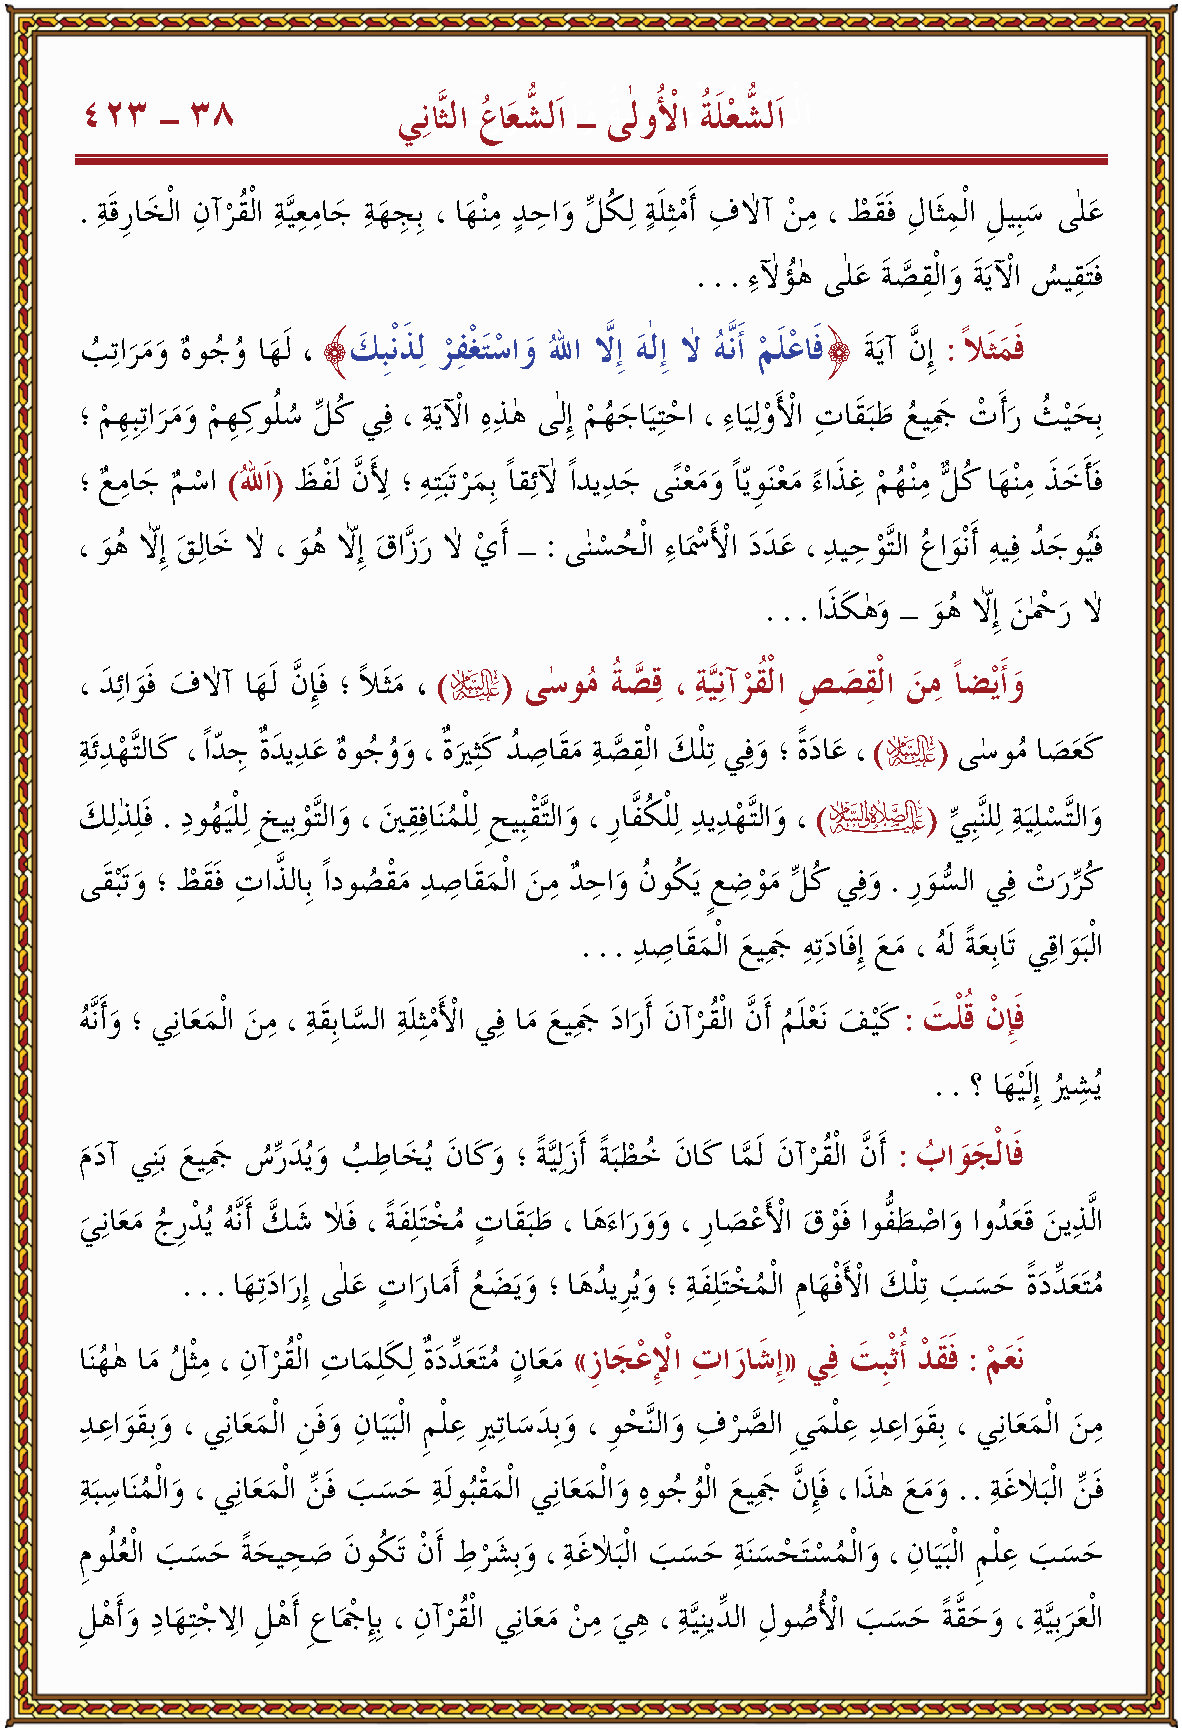 اَلشُّعْلَةُ الْأُولٰى – اَلشُّعَاعُ الثَّانِي ٣٨ – ٤٢٣
عَلٰى سَبِيلِ الْمِثَالِ فَقَطْ ، مِنْ آلَافِ أَمْثِلَةٍ لِكُلِّ وَاحِدٍ مِنْهَا ، بِجِهَةِ جَامِعِيَّةِ الْقُرْآنِ الْخَارِقَةِ .
فَتَقِيسُ الْآيَةَ وَالْقِصَّةَ عَلٰى هٰؤُلَآءِ . . .
فَمَثَلاً : إِنَّ آيَةَ ﴿فَاعْلَمْ أَنَّهُ لَا إِلٰهَ إِلَّا اللهُ وَاسْتَغْفِرْ لِذَنْبِكَ﴾ ، لَهَا وُجُوهٌ وَمَرَاتِبُ
بِحَيْثُ رَأَتْ جَمِيعُ طَبَقَاتِ الْأَوْلِيَاءِ ، اِحْتِيَاجَهُمْ إِلٰى هٰذِهِ الْآيَةِ ، فِي كُلِّ سُلُوكِهِمْ وَمَرَاتِبِهِمْ ؛
فَأَخَذَ مِنْهَا كُلٌّ مِنْهُمْ غِذَاءً مَعْنَوِيّاً وَمَعْنًى جَدِيداً لَآئِقاً بِمَرْتَبَتِهِ ؛ لِأَنَّ لَفْظَ (اَللهُ) اسْمٌ جَامِعٌ ؛
فَيُوجَدُ فِيهِ أَنْوَاعُ التَّوْحِيدِ ، عَدَدَ الْأَسْمَاءِ الْحُسْنٰى : – أَيْ لَا رَزَّاقَ إِلَّا هُوَ ، لَا خَالِقَ إِلَّا هُوَ ،
لَا رَحْمٰنَ إِلَّا هُوَ – وَهٰكَذَا . . .
وَأَيْضاً مِنَ الْقِصَصِ الْقُرْآنِيَّةِ ، قِصَّةُ مُوسٰى (عَلَيْهِ السَّلَامُ) ، مَثَلاً ؛ فَإِنَّ لَهَا آلَافَ فَوَائِدَ ،
كَعَصَا مُوسٰى (عَلَيْهِ السَّلَامُ) ، عَادَةً ؛ وَفِي تِلْكَ الْقِصَّةِ مَقَاصِدُ كَثِيرَةٌ ، وَوُجُوهٌ عَدِيدَةٌ جِدّاً ، كَالتَّهْدِئَةِ
وَالتَّسْلِيَةِ لِلنَّبِيِّ (عَلَيْهِ الصَّلَاةُ وَالسَّلَامُ) ، وَالتَّهْدِيدِ لِلْكُفَّارِ ، وَالتَّقْبِيحِ لِلْمُنَافِقِينَ ، وَالتَّوْبِيخِ لِلْيَهُودِ . فَلِذٰلِكَ
كُرِّرَتْ فِي السُّوَرِ . وَفِي كُلِّ مَوْضِعٍ يَكُونُ وَاحِدٌ مِنَ الْمَقَاصِدِ مَقْصُوداً بِالذَّاتِ فَقَطْ ؛ وَتَبْقَى
الْبَوَاقِي تَابِعَةً لَهُ ، مَعَ إِفَادَتِهِ جَمِيعَ الْمَقَاصِدِ . . .
فَإِنْ قُلْتَ : كَيْفَ نَعْلَمُ أَنَّ الْقُرْآنَ أَرَادَ جَمِيعَ مَا فِي الْأَمْثِلَةِ السَّابِقَةِ ، مِنَ الْمَعَانِي ؛ وَأَنَّهُ
يُشِيرُ إِلَيْهَا ؟ . .
فَالْجَوَابُ : أَنَّ الْقُرْآنَ لَمَّا كَانَ خُطْبَةً أَزَلِيَّةً ؛ وَكَانَ يُخَاطِبُ وَيُدَرِّسُ جَمِيعَ بَنِي آدَمَ
الَّذِينَ قَعَدُوا وَاصْطَفُّوا فَوْقَ الْأَعْصَارِ ، وَوَرَاءَهَا ، طَبَقَاتٍ مُخْتَلِفَةً ، فَلَا شَكَّ أَنَّهُ يُدْرِجُ مَعَانِيَ
مُتَعَدِّدَةً حَسَبَ تِلْكَ الْأَفْهَامِ الْمُخْتَلِفَةِ ؛ وَيُرِيدُهَا ؛ وَيَضَعُ أَمَارَاتٍ عَلٰى إِرَادَتِهَا . . .
نَعَمْ : فَقَدْ أُثْبِتَ فِي «إِشَارَاتِ الْإِعْجَازِ» مَعَانٍ مُتَعَدِّدَةٌ لِكَلِمَاتِ الْقُرْآنِ ، مِثْلُ مَا هُهُنَا
مِنَ الْمَعَانِي ، بِقَوَاعِدِ عِلْمَيِ الصَّرْفِ وَالنَّحْوِ ، وَبِدَسَاتِيرِ عِلْمِ الْبَيَانِ وَفَنِ الْمَعَانِي ، وَبِقَوَاعِدِ
فَنِّ الْبَلَاغَةِ . . وَمَعَ هٰذَا ، فَإِنَّ جَمِيعَ الْوُجُوهِ وَالْمَعَانِي الْمَقْبُولَةِ حَسَبَ فَنِّ الْمَعَانِي ، وَالْمُنَاسِبَةِ
حَسَبَ عِلْمِ الْبَيَانِ ، وَالْمُسْتَحْسَنَةِ حَسَبَ الْبَلَاغَةِ ، وَبِشَرْطِ أَنْ تَكُونَ صَحِيحَةً حَسَبَ الْعُلُومِ
الْعَرَبِيَّةِ ، وَحَقَّةً حَسَبَ الْأُصُولِ الدِّينِيَّةِ ، هِيَ مِنْ مَعَانِي الْقُرْآنِ ، بِإِجْمَاعِ أَهْلِ الِاجْتِهَادِ وَأَهْلِ